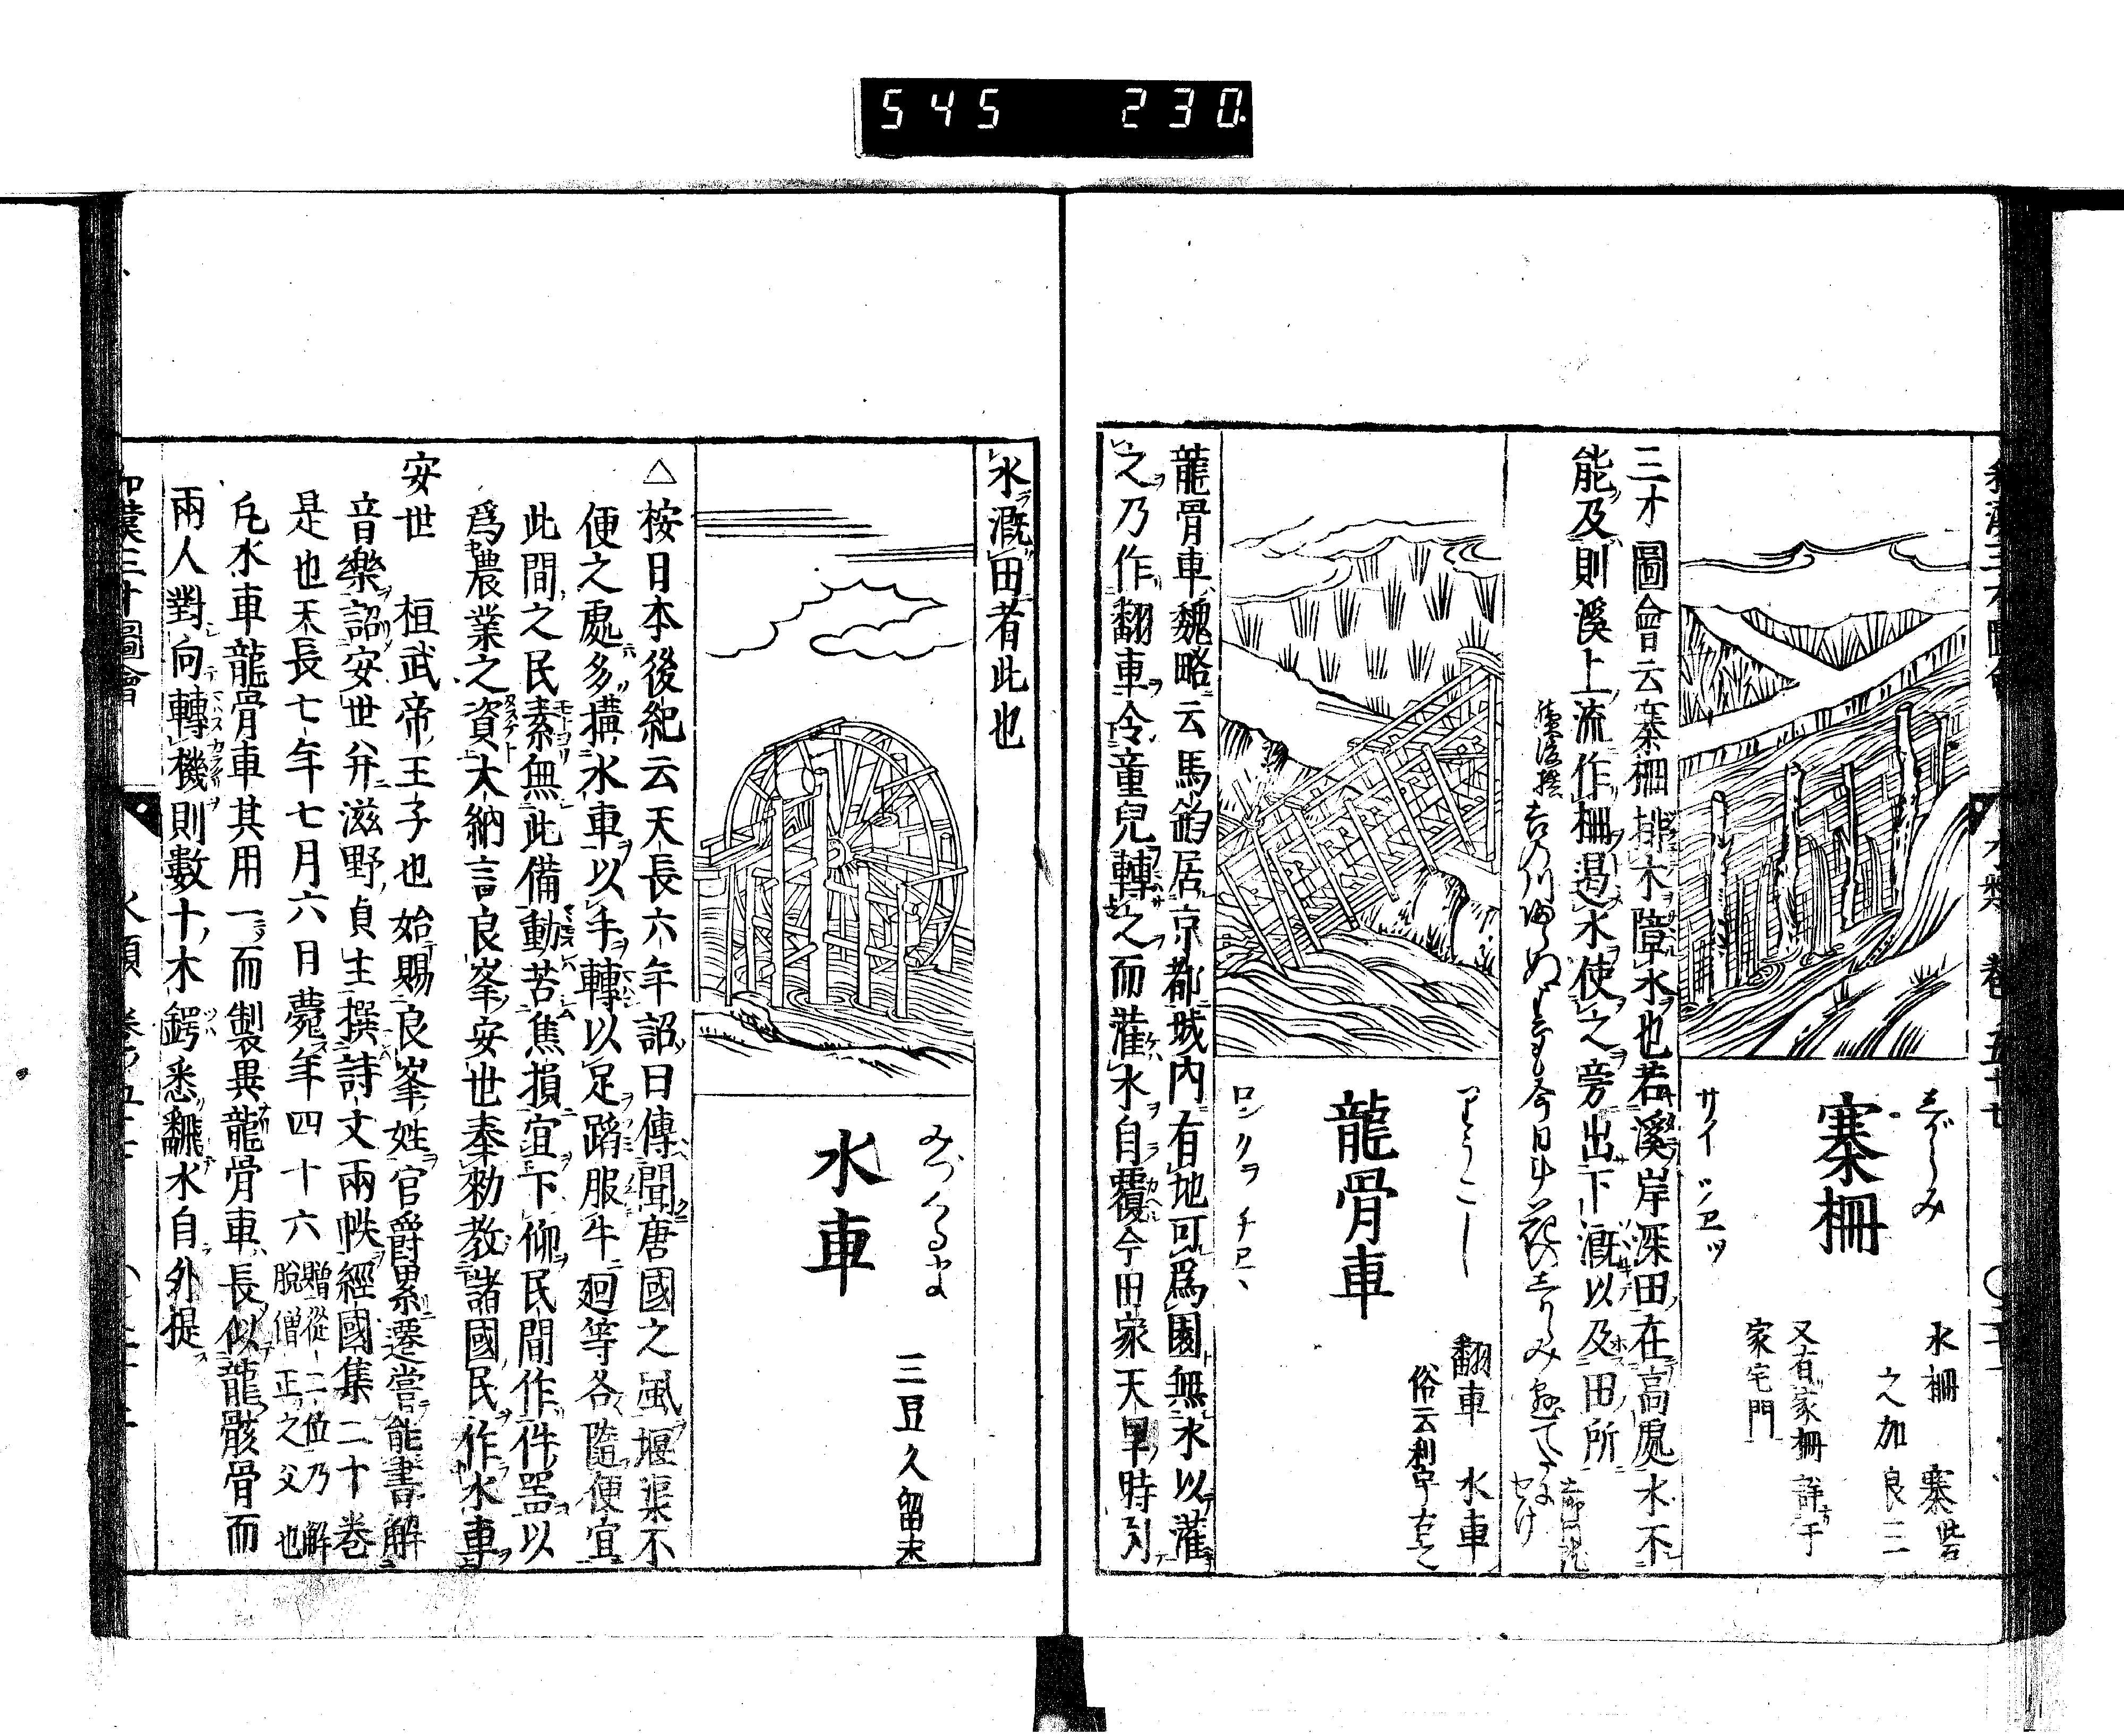 545 230
和漢三才圖會 水類 卷五十七
寨柵
サイ ツヱツ
水柵 寨砦
之加良三
又有家柵詳于
家宅門
三才圖會云寨柵排木障水也若溪岸深田在高處水不
能及則溪上流作柵遏水使之旁出下溉以及田所
龍骨車
翻車 水車
俗云利宇古之
龍骨車魏略云馬鈞居京都城內有地可爲園無水以灌
之乃作翻車令童兒轉之而灌水自覆今田家天旱時引
水溉田者此也
水車
みづくるま
三豆久留末
△按日本後紀云天長六年詔曰傳聞唐國之風堰渠不
便之處多搆水車以手轉以足蹈服牛廻等各隨便宜
此間之民素無此備動苦焦損宜下仰民間作件噐以
爲農業之資大納言良峯安世奉勑教諸國民作水車
安世 桓武帝王子也始賜良峯姓官爵累遷嘗能書解
音樂詔安世并滋野貞主撰詩文兩帙經國集二十卷
是也天長七年七月六日薨年四十六 贈從二位乃解
脫僧正之父也
凡水車龍骨車其用一而製異龍骨車長似龍骸骨而
兩人對向轉機則數十木鍔悉飜水自外提
和漢三才圖會 水類 卷五十七